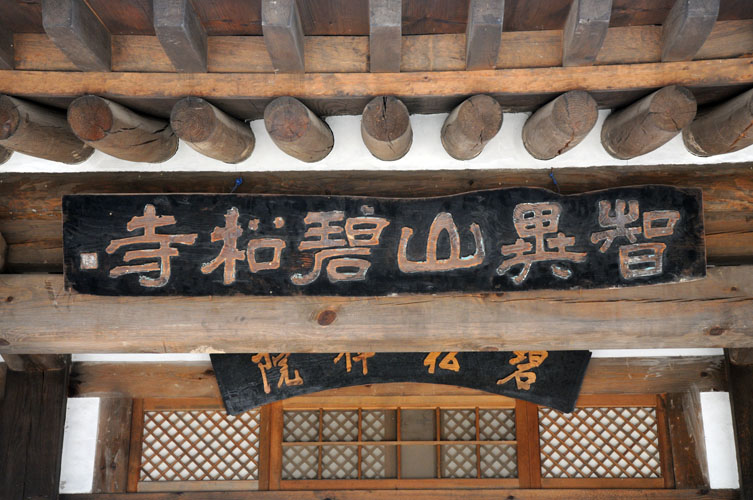 智異山碧松寺
碧松禪院